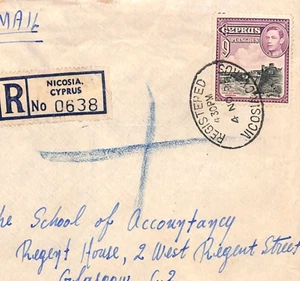 MAIL
CYPRUS
9
PIASTRES
NICOSIA,
CYPRUS
R No 0638
REGISTERED
4 30 PM
4
NICOSIA
The School of Accountancy
Regent House, 2 West Regent Street
Glasgow C.2